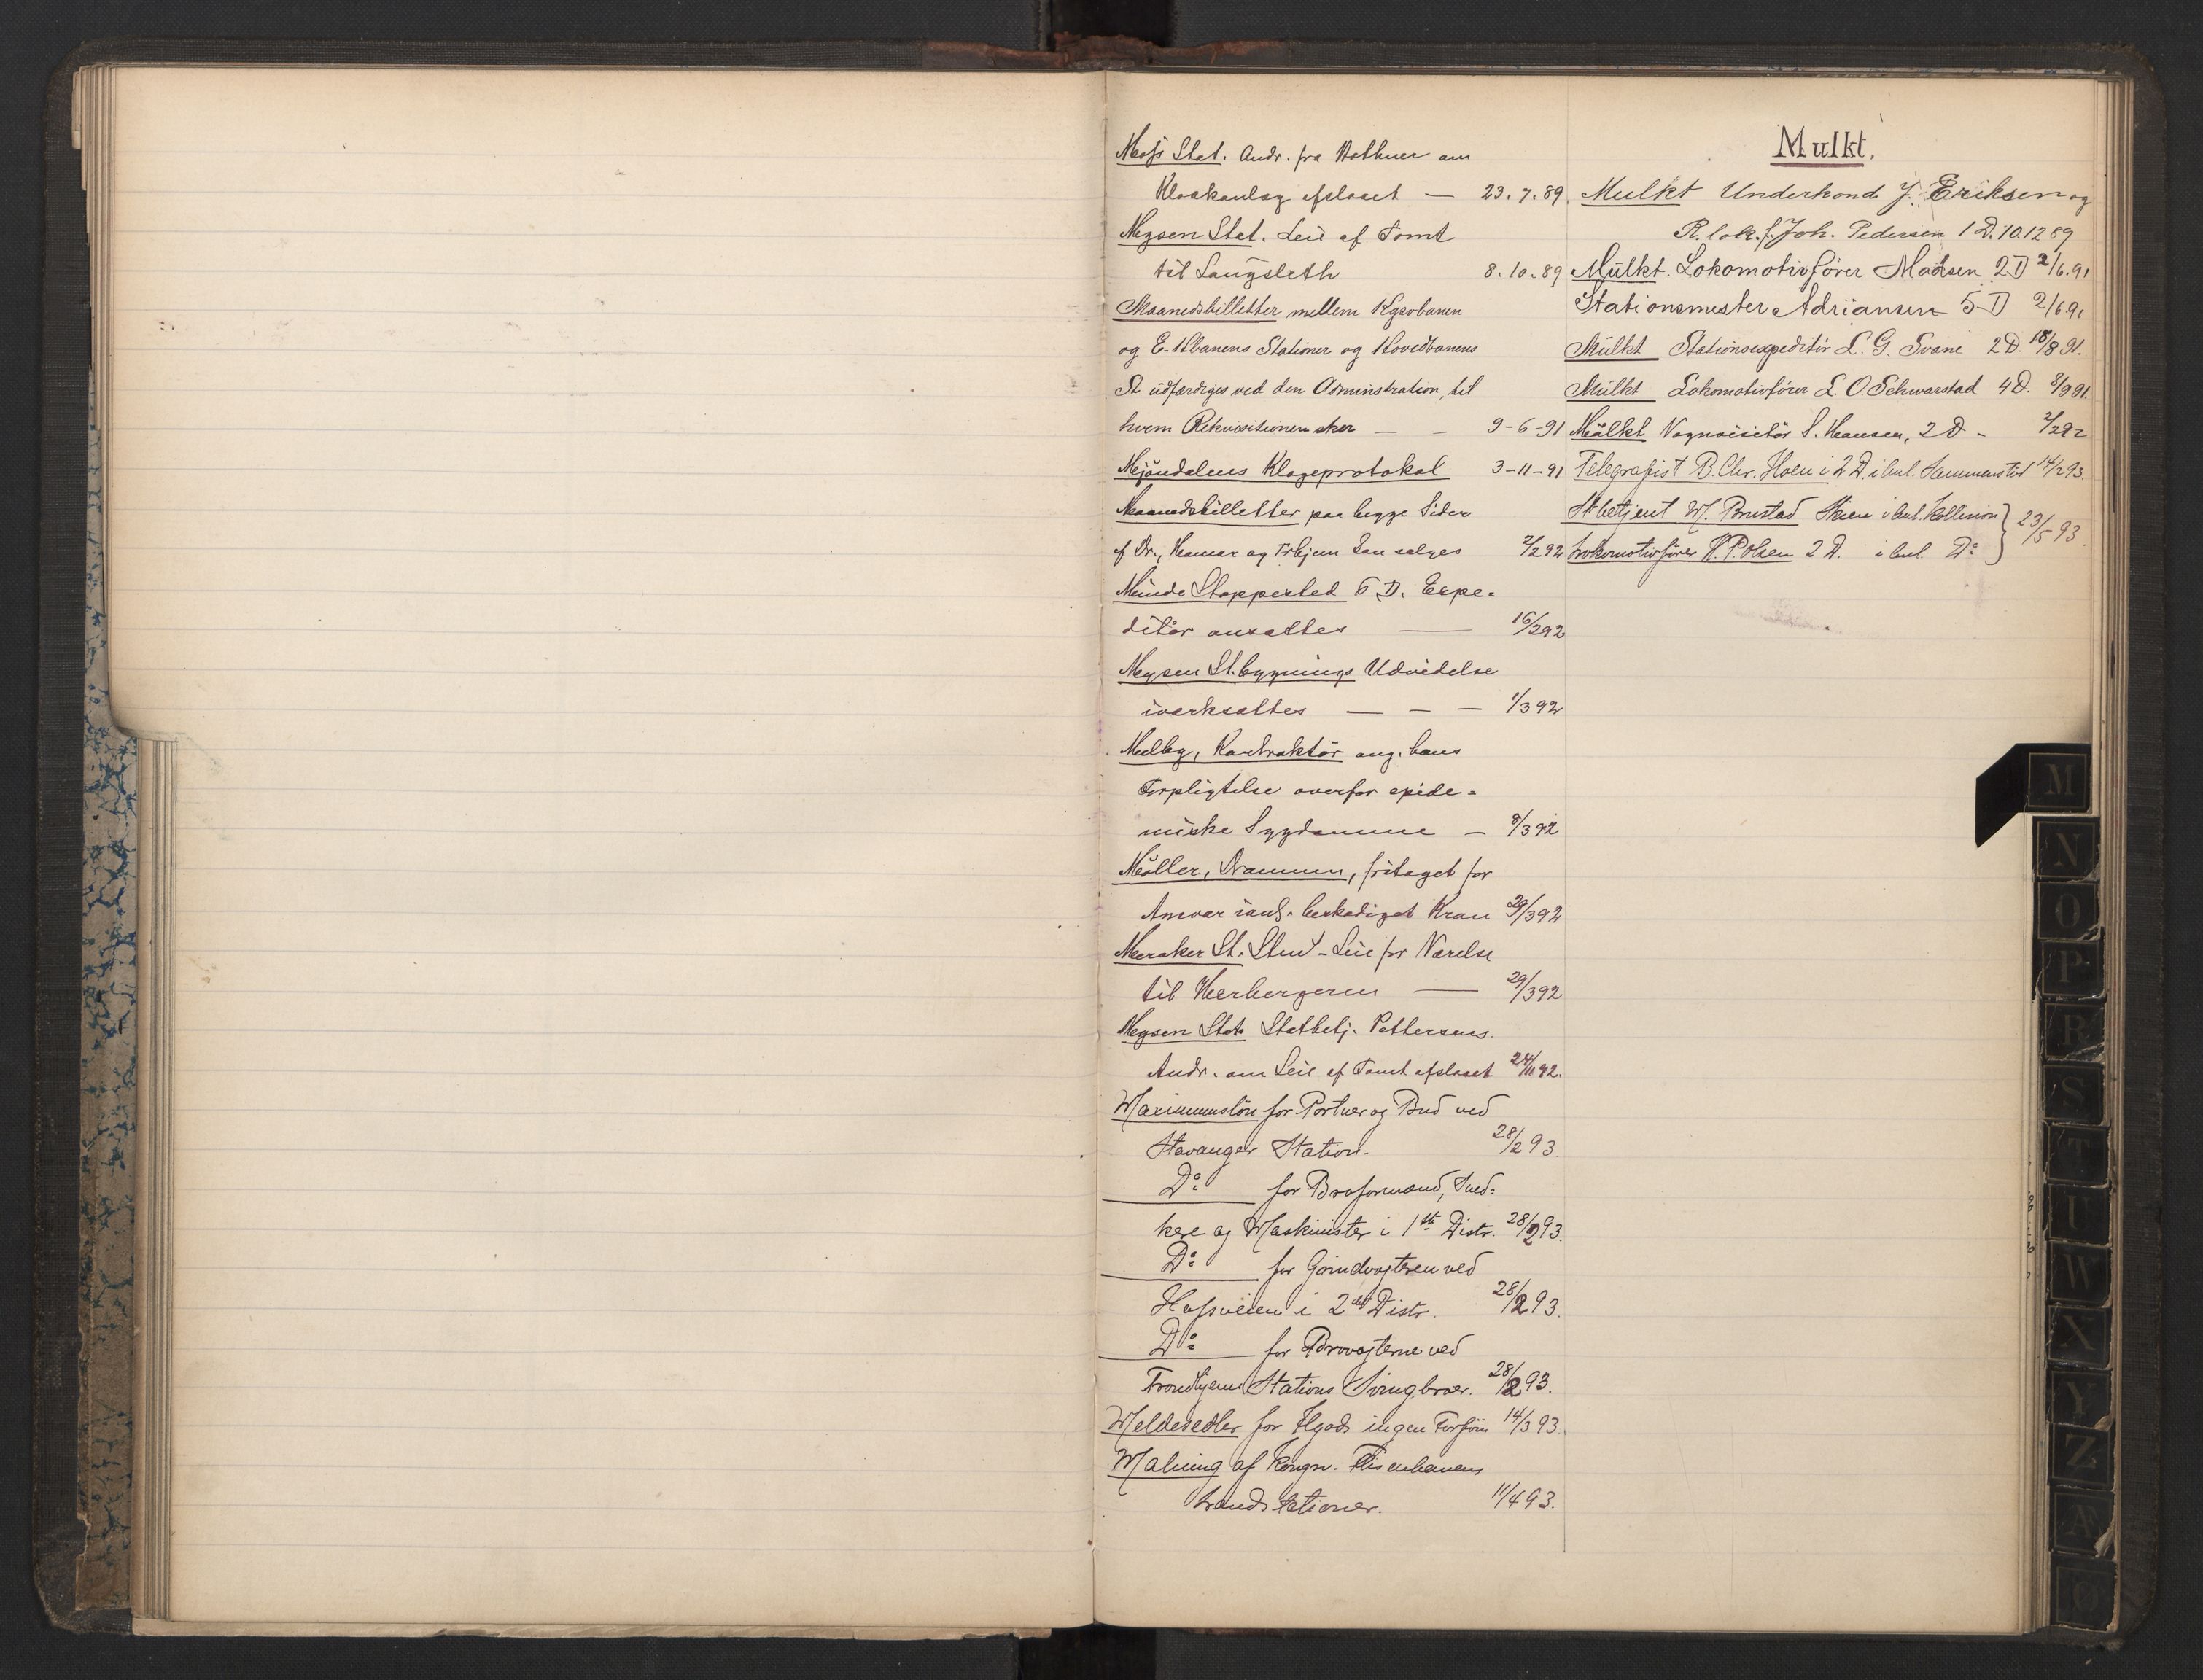 Moss Stat. Andr. fra Bothner om
Kloakanlæg afslaaet — 23.7.89
Mysen Stat. Leie af Tomt
til Langsleth 8.10.89
Maanedsbilletter mellem Kgsvbanen
og E-Hbanens Stationer og Hovedbanens
St udfærdiges ved den Adminstration, til
hvem Rekvisitionen sker — — 9-6-91
Mjöndalens Klageprotokol 3-11-91
Maanedsbilletter paa begge Sider
af Dr., Hamar og Trhjem kan sælges 2/2 92
Minde Stoppested 6 D. Expe-
ditör ansættes — 16/2 92
Mysen St.bygnings Udvidelse
iværksættes — — — 1/3 92
Melby, Kontraktör ang. hans
Forpligtelse overfor epide-
miske Sygdomme — 8/3 92
Möller, Drammen, fritaget for
Ansvar ianl. beskadiget Kran 29/3 92
Meraker St. Stm - Leie for Værelse
til Herbergeren — 29/3 92
Mysen Stat. Statbetj. Pettersens
Andr. om Leie af Tomt afslaaet 24/11 92.
Maximumslön for Portner og Bud ved
Stavanger Station. 28/2 93.
Do for Broformænd, Sned-
kere og Maskinister i 1ste Distr. 28/2 93.
Do for Grindvogteren ved
Hofsveien i 2det Distr. 28/2 93.
Do for Brovogterne ved
Trondhjems Stations Svingbroer. 28/2 93.
Meldesedler for Ilgods ingen Forsön 14/3 93.
Maling af Kongsv. banens
Stationer. 11/4 93.
Mulkt.
Mulkt Underkond J. Eriksen og
R. lok.f. Joh. Pedersen 1 D. 10.12 89
Mulkt. Lokomotivfører Madsen 2 D 2/6.91
Stationsmester Adriansen 5 D 2/6 91
Mulkt Stationsexpeditör L. G. Svane 2 D. 18/8 91.
Mulkt Lokomotivfører L. O. Schwarstad 4 D. 8/9 91.
Mulkt Vognvisitör S. Hansen, 2 D - 2/2 92
Telegrafist B. Chr. Hoen i 2 D i Anl. Sammenstöd 14/2 93.
Stbetjent M. Brustad Skien i Anl. Kollision } 23/5 93.
Lokomotivfører K. P. Olsen 2 D. i Anl. Do
M
N
O
P
R
S
T
U
W
X
Y
Z
Æ
Ø